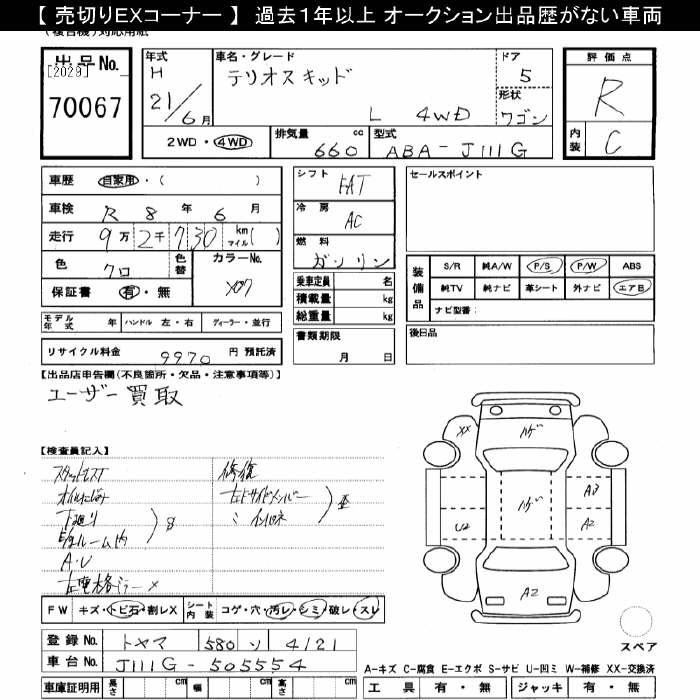 【 売切りEXコーナー 】 過去１年以上 オークション出品歴がない車両
(複合機)対応用紙
出品No.
[2029]
70067
年式
H
21/6月
車名・グレード
テリオスキッド
L 4WD
ドア
5
形状
ワゴン
2WD・4WD
排気量 cc
660
型式
ABA-J111G
評価点
R
内装
C
車歴 自家用・( )
車検 R 8年 6月
走行 9万2千730 km マイル( )
色 クロ
色替
カラーNo.
X07
保証書 有・無
シフト
FAT
冷房
AC
燃料
ガソリン
乗車定員 名
積載量 kg
総重量 kg
書類期限
月 日
セールスポイント
装備品
S/R 純A/W P/S P/W ABS
純TV 純ナビ 革シート 外ナビ エアB
ナビ型番:
後日品
モデル年式 年 ハンドル 左・右 ディーラー・並行
リサイクル料金 9970 円 預託済
【出品店申告欄(不良箇所・欠品・注意事項等)】
ユーザー買取
【検査員記入】
修復
下廻り
A・U
XX
ハゲ
ハゲ
A3
A2
U2
A2
FW キズ・トビ石・割レX シート内装 コゲ・穴・汚レ・シミ・破レ・スレ
スペア
登録No. トヤマ 580 ソ 4121
車台No. J111G-505554
A-キズ C-腐食 E-エクボ S-サビ U-凹ミ W-補修 XX-交換済
車庫証明用 長さ cm 幅 cm 高さ cm
工具 有・無 ジャッキ 有・無